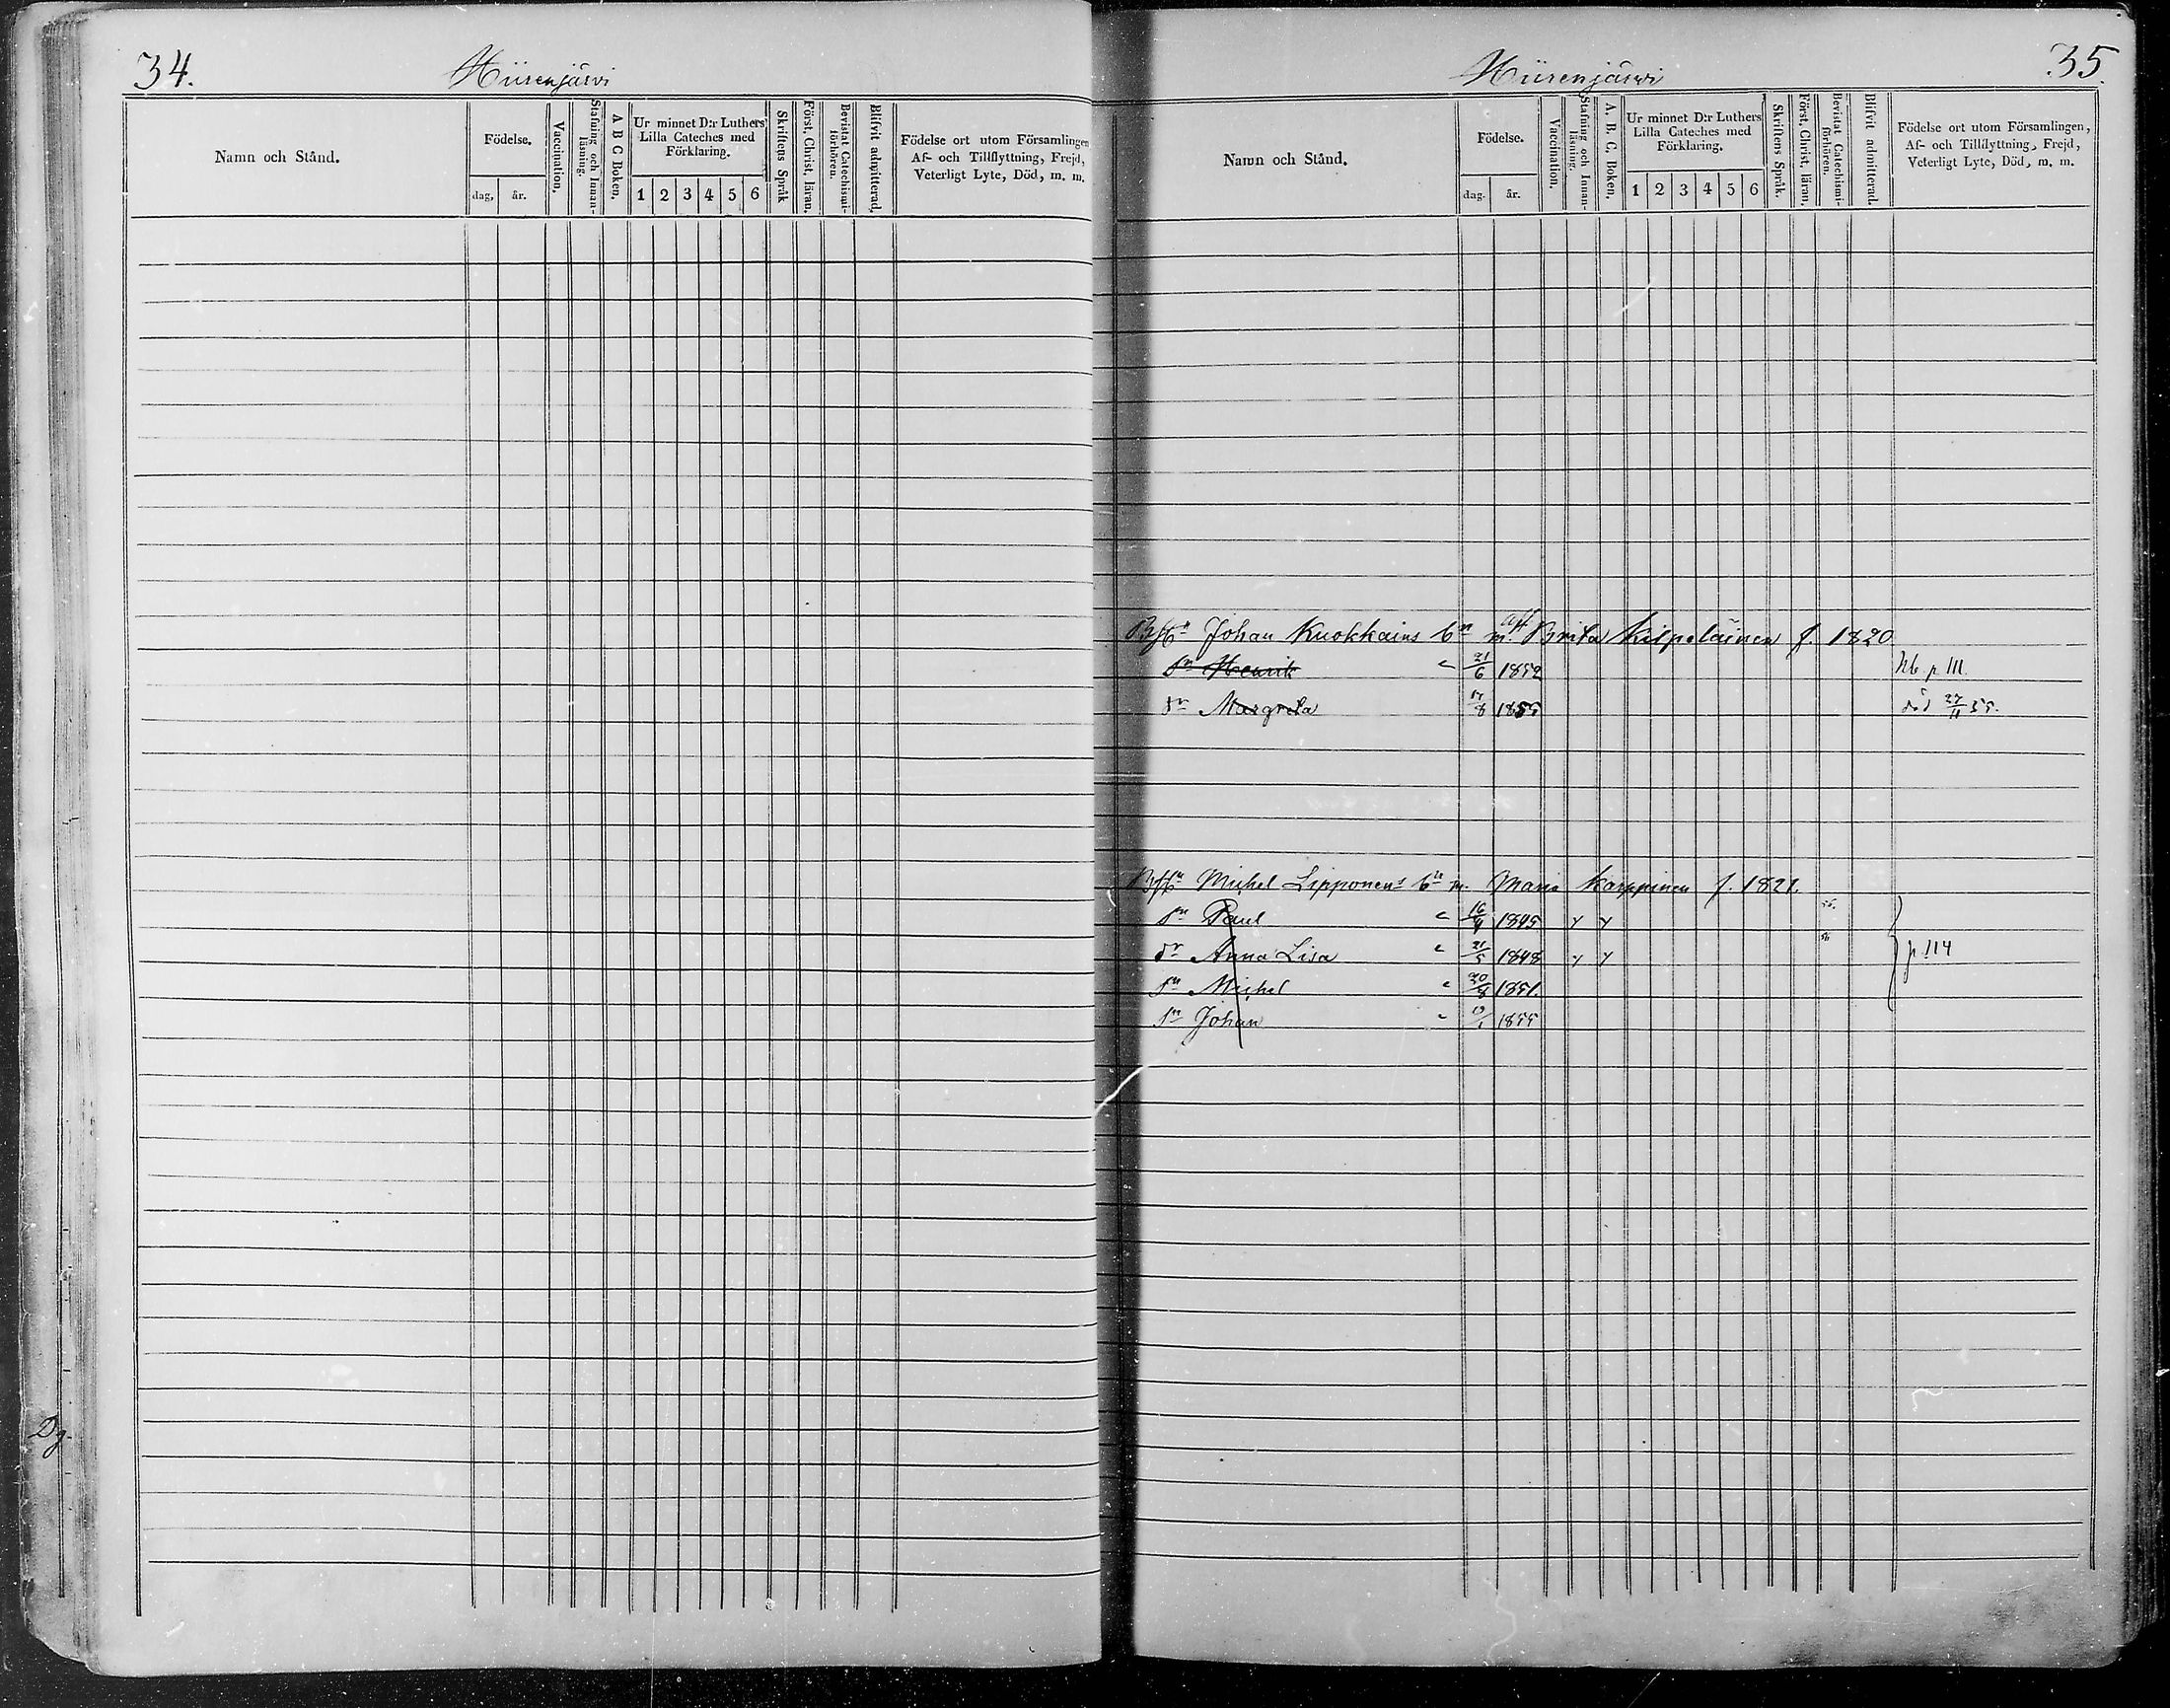 34.
Hiirenjärvi
Namn och Stånd.
Födelse.
dag, år.
Vaccination.
Stafning och Innan-
läsning.
A B C Boken.
Ur minnet D:r Luthers
Lilla Cateches med
Förklaring.
1 2 3 4 5 6
Skriftens Språk
Först. Christ. läran.
Bevistat Catechismi-
förhören.
Blifvit admitterad.
Födelse ort utom Församlingen
Af- och Tillflyttning, Frejd,
Veterligt Lyte, Död, m. m.
Dg.
35.
Hiirenjärvi
Namn och Stånd.
Födelse.
dag. år.
Vaccination.
Stafning och Innan-
läsning.
A. B. C. Boken.
Ur minnet D:r Luthers
Lilla Cateches med
Förklaring.
1 2 3 4 5 6
Skriftens Språk.
Först. Christ. läran.
Bevistat Catechismi-
förhören.
Blifvit admitterad.
Födelse ort utom Församlingen,
Af- och Tillflyttning, Frejd,
Veterligt Lyte, Död, m. m.
Johan Knokkains bn m. Brita Kilpeläinen f. 1820
Sn Henrik 21/6 1852 p 111.
dr Margreta 17/8 1855 död 27/11 55.
Michel Lipponens bn m. Maria Karppinen f. 1821.
Sn Paul 16/4 1845 56.
dr Anna Lisa 21/5 1848 56 p 114
Sn Michel 20/8 1851.
Sn Johan 19/1 1855